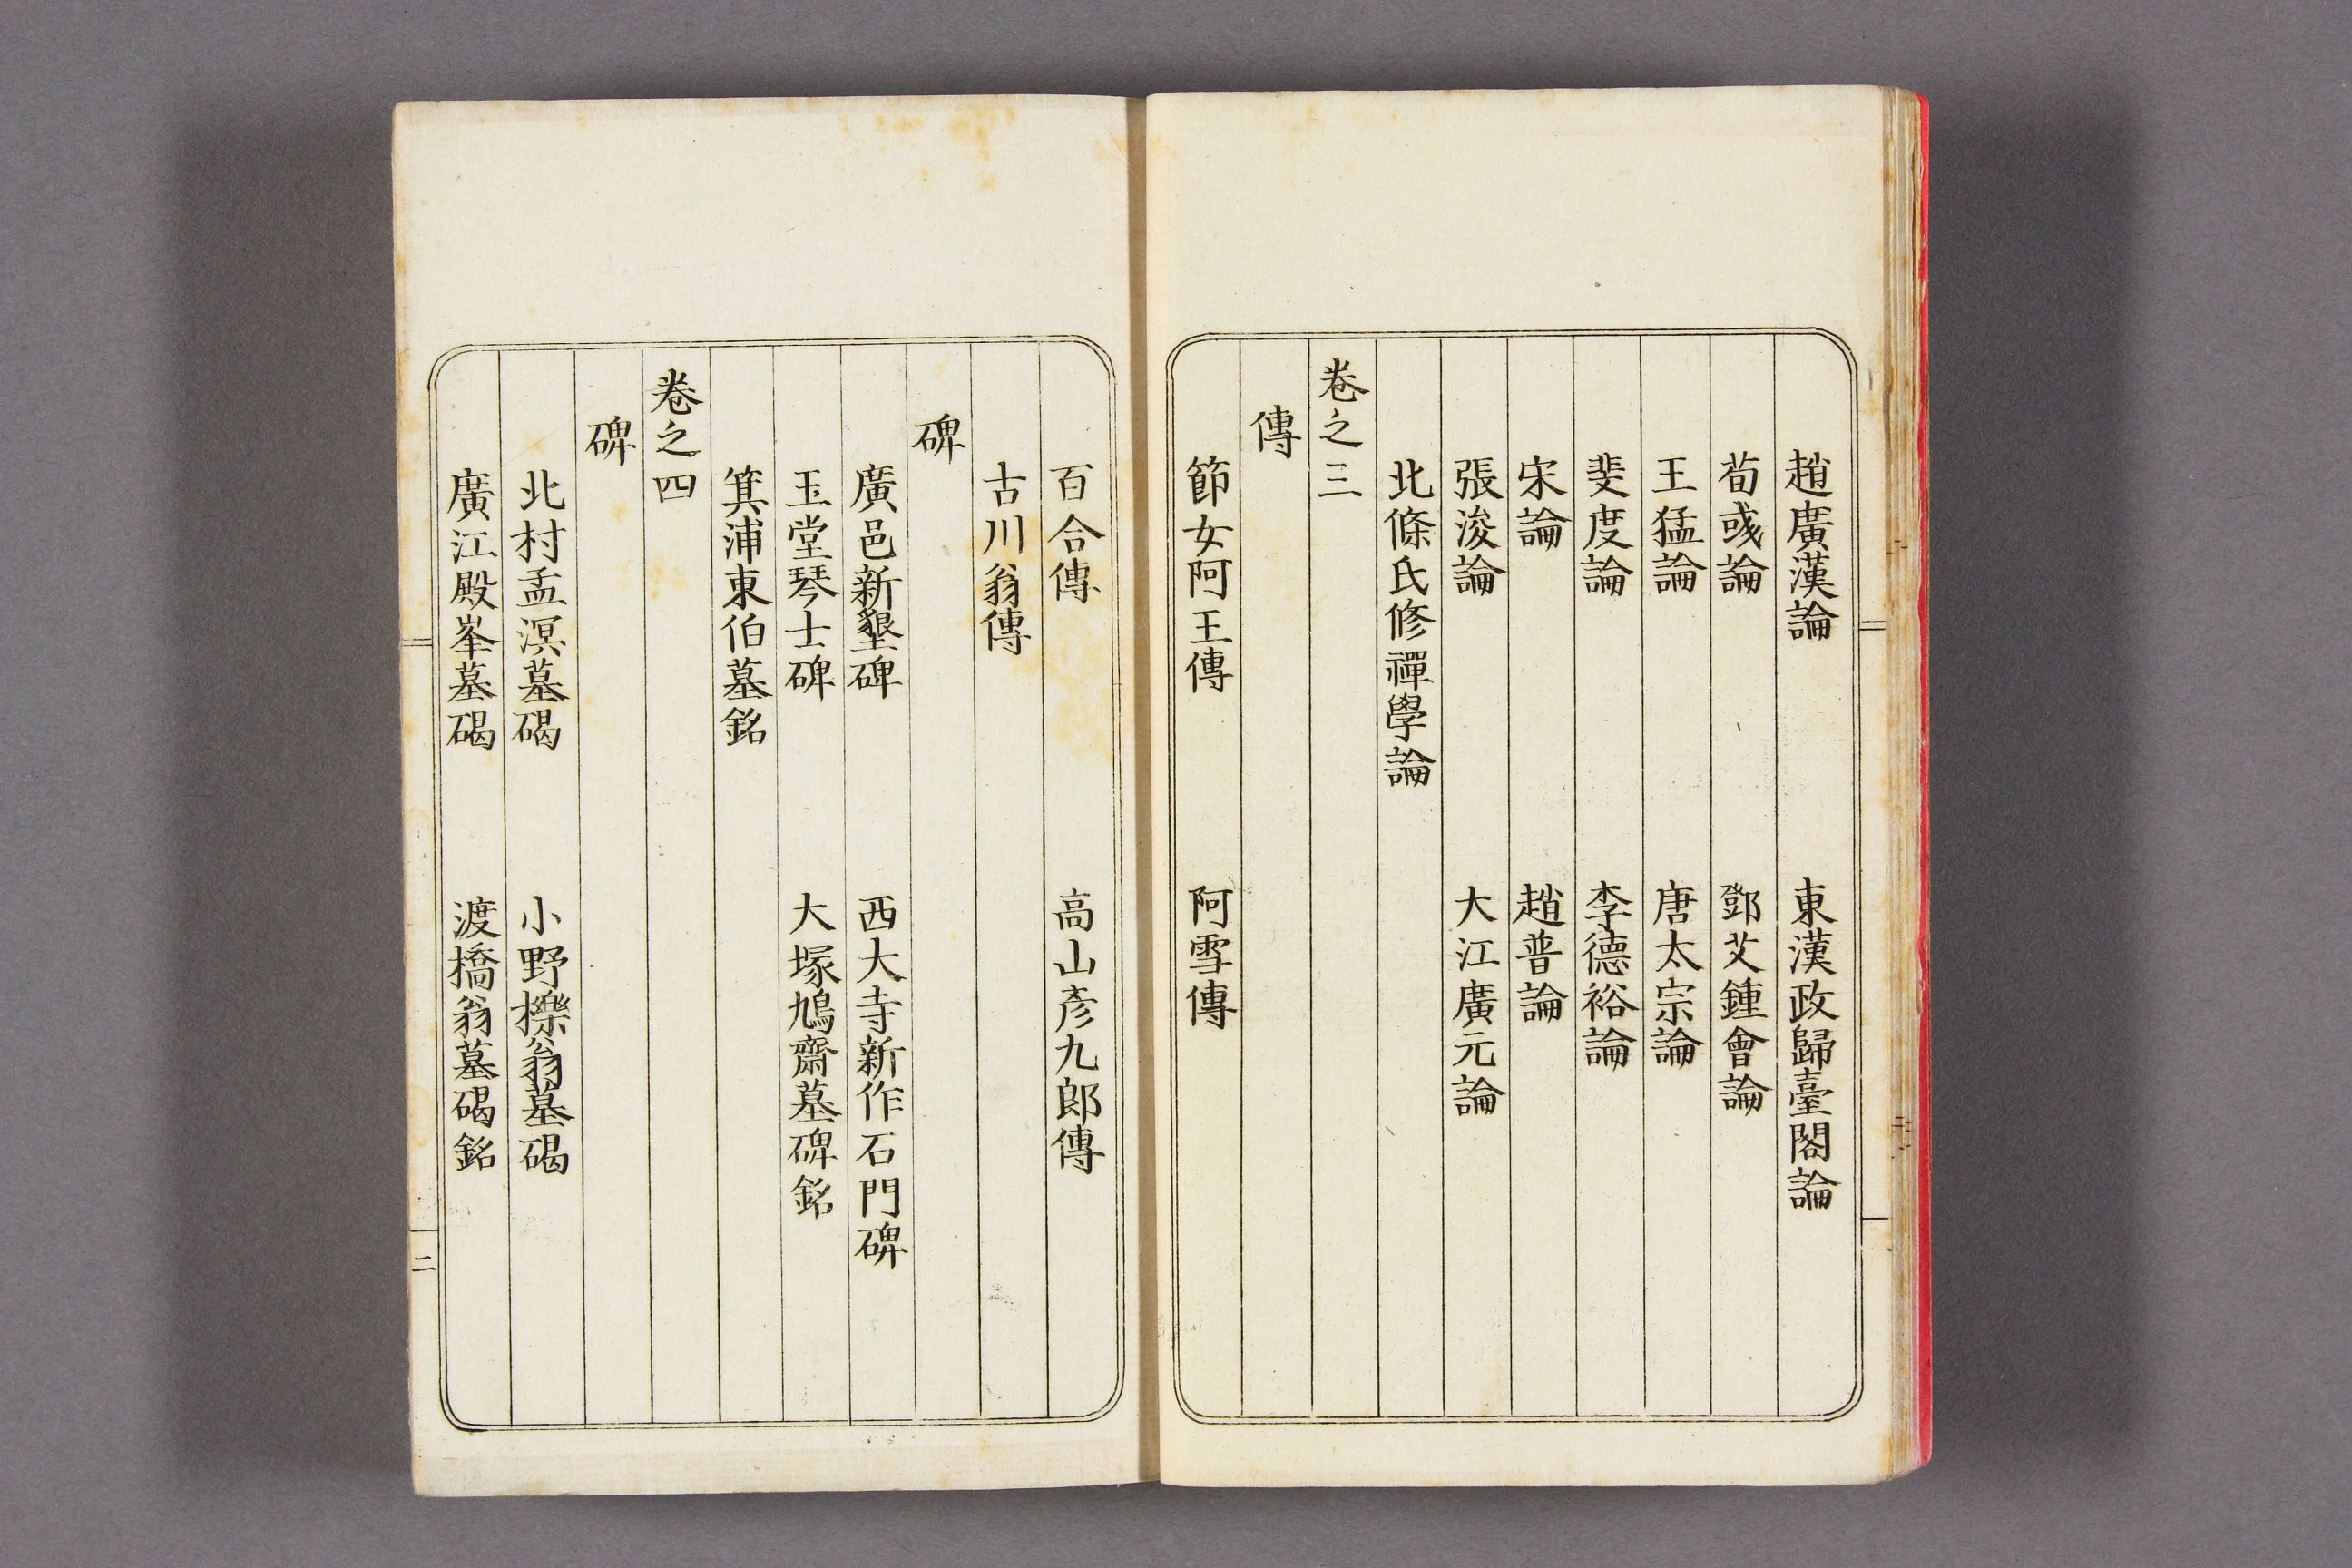 趙廣漢論　東漢政歸臺閣論
荀彧論　鄧艾鍾會論
王猛論　唐太宗論
斐度論　李德裕論
宋論　趙普論
張浚論　大江廣元論
北條氏修禪學論
卷之三
傳
節女阿王傳　阿雪傳
百合傳　高山彥九郎傳
古川翁傳
碑
廣邑新墾碑　西大寺新作石門碑
玉堂琴士碑　大塚鳩齋墓碑銘
箕浦東伯墓銘
卷之四
碑
北村孟溟墓碣　小野櫟翁墓碣
廣江殿峯墓碣　渡橋翁墓碣銘
二